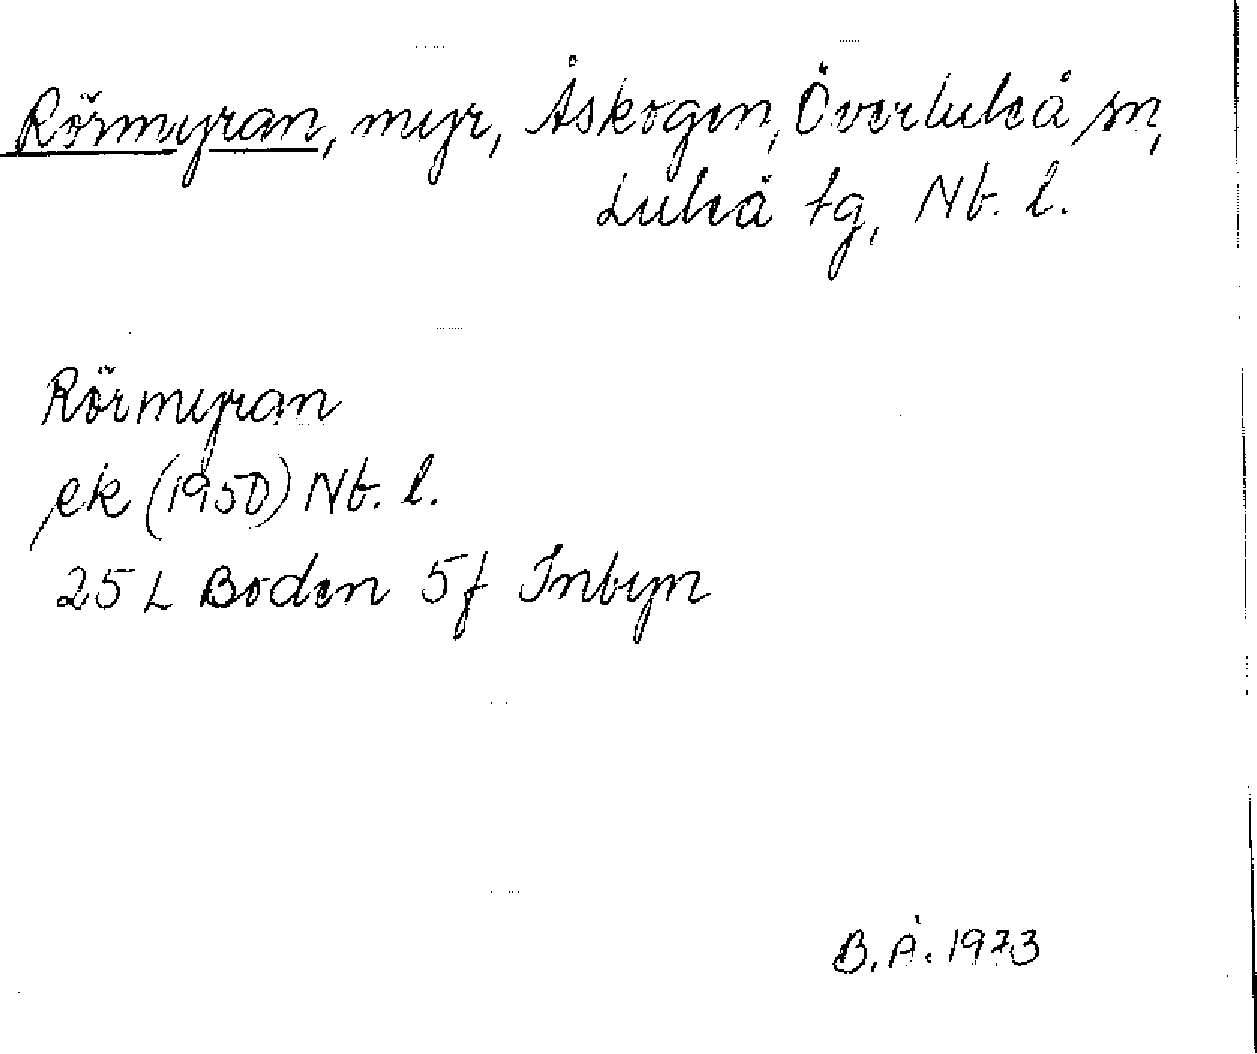 Rörmyran, myr, Åskogen, Överluleå sn,
Luleå tg, Nb. l.
Rörmyran
ek (1950) Nb. l.
25 L Boden 5f Inbyn
B.Å. 1973